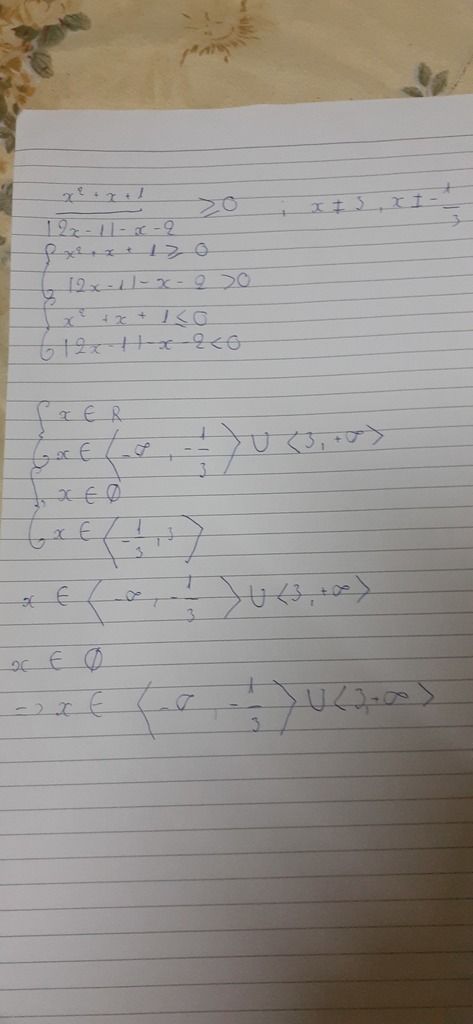 x² + x + 1 / |2x-1| - x - 2 ≥ 0 ; x ≠ 3, x ≠ -1/3
{ x² + x + 1 ≥ 0
|2x-1| - x - 2 > 0
{ x² + x + 1 ≤ 0
|2x-1| - x - 2 < 0
{ x ∈ R
x ∈ ⟨-∞, -1/3⟩ ∪ ⟨3, +∞⟩
{ x ∈ ∅
x ∈ ⟨-1/3, 3⟩
x ∈ ⟨-∞, -1/3⟩ ∪ ⟨3, +∞⟩
x ∈ ∅
=> x ∈ ⟨-∞, -1/3⟩ ∪ ⟨3, +∞⟩